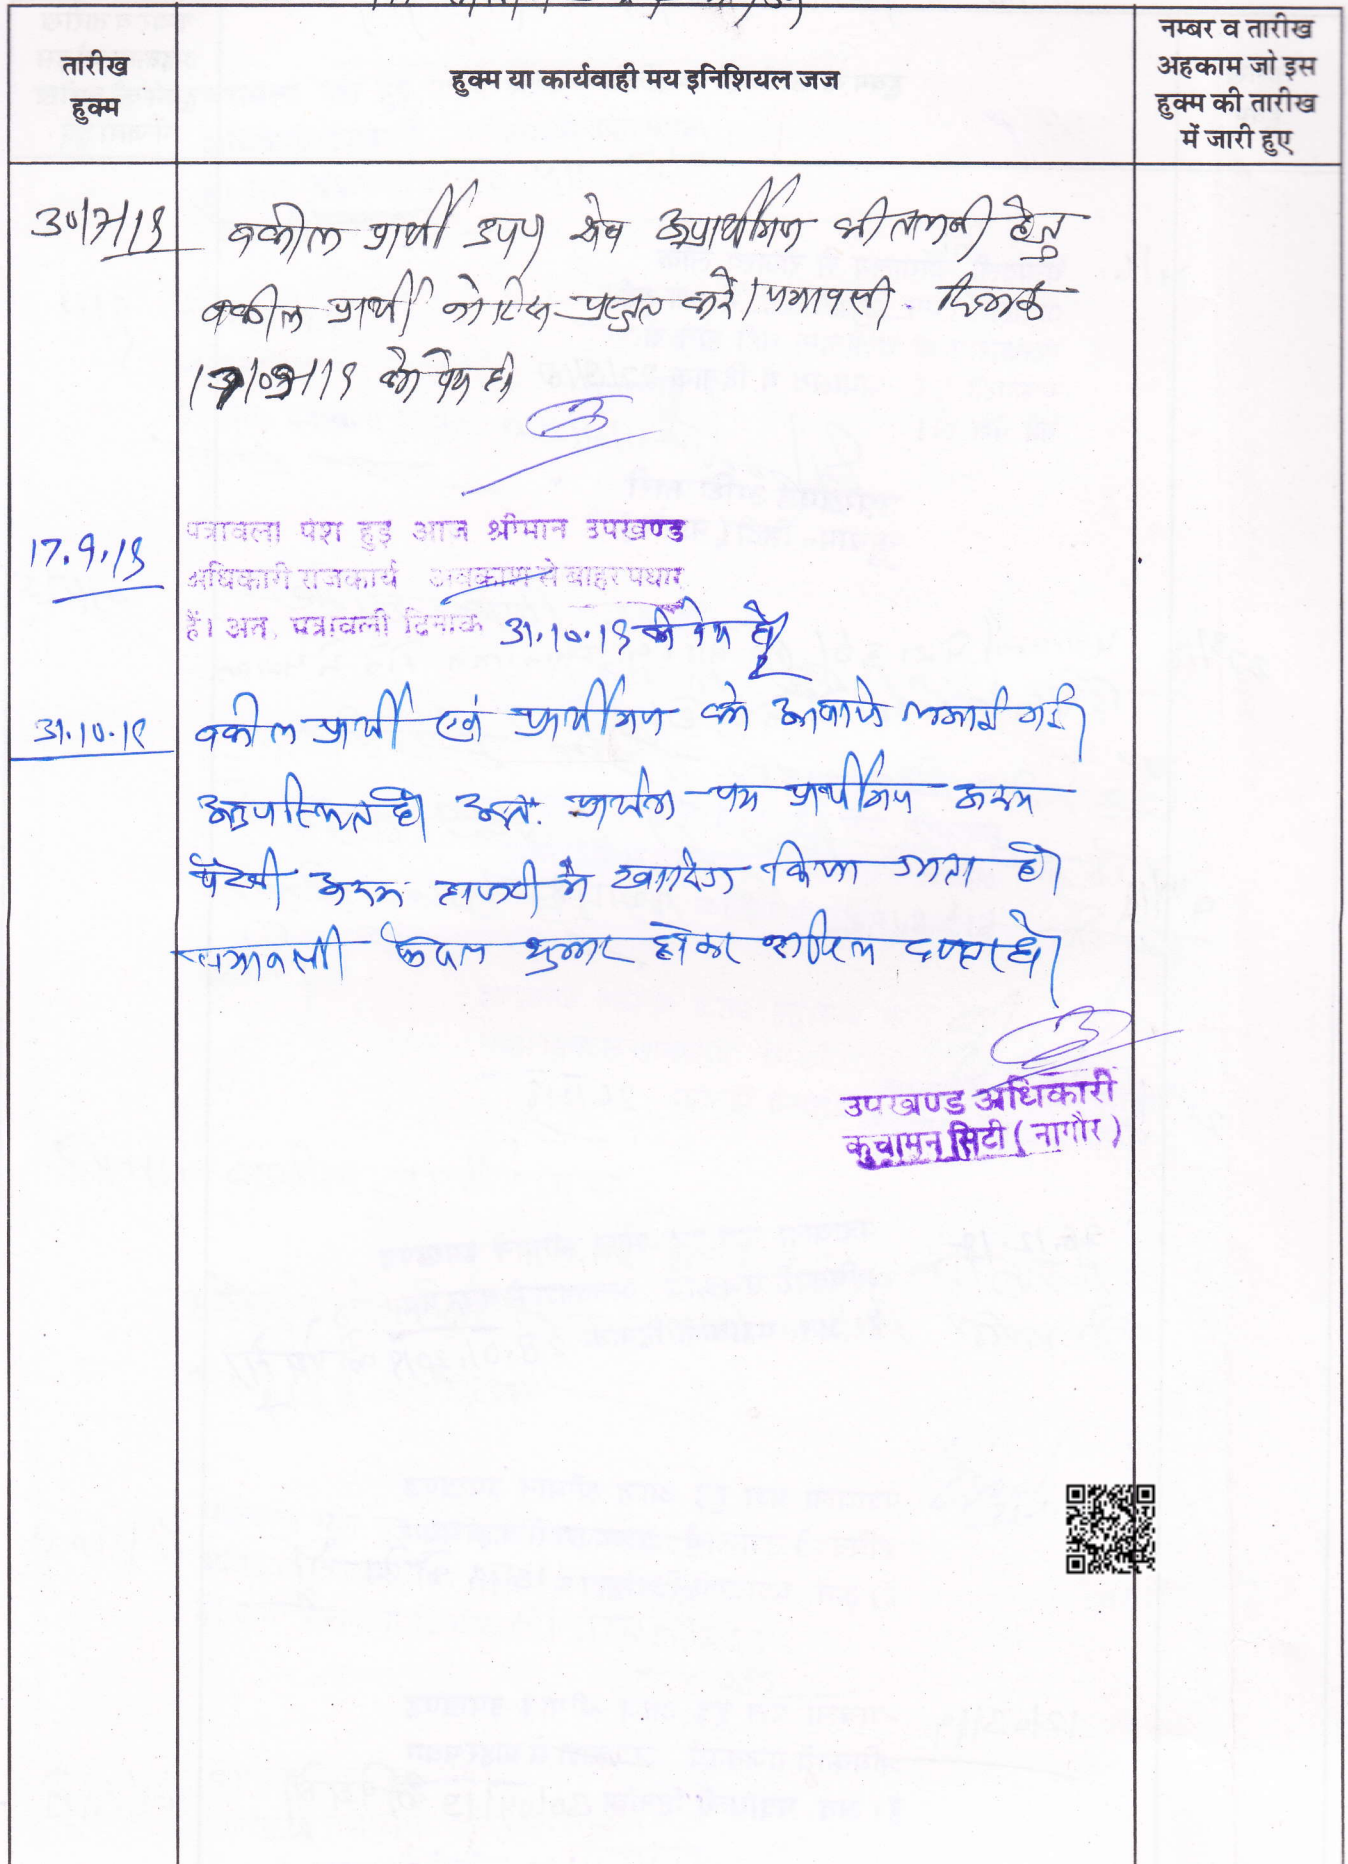 तारीख
हुक्म
हुक्म या कार्यवाही मय इनिशियल जज
नम्बर व तारीख
अहकाम जो इस
हुक्म की तारीख
में जारी हुए
30/7/19 वकील प्रार्थी उप० शेष अप्रार्थीगण की तलबी हेतु
वकील प्रार्थी नोटिस प्रस्तुत करें। पत्रावली दिनांक
17/09/19 को पेश हो
17.9.19 पत्रावली पेश हुई आज श्रीमान उपखण्ड
अधिकारी राजकार्य अवकाश से बाहर पधारे
हैं। अत. पत्रावली दिनांक 31.10.19 को पेश हो
31.10.19 वकील प्रार्थी एवं प्रार्थीगण को आवाजे लगाई गई।
अनुपस्थित है। अतः प्रार्थना पत्र प्रार्थीगण अदम
पैरवी अदम हाजरी में खारिज किया जाता है।
पत्रावली फैसल शुमार होकर दाखिल दफ्तर हो।
उपखण्ड अधिकारी
कुचामन सिटी (नागौर)